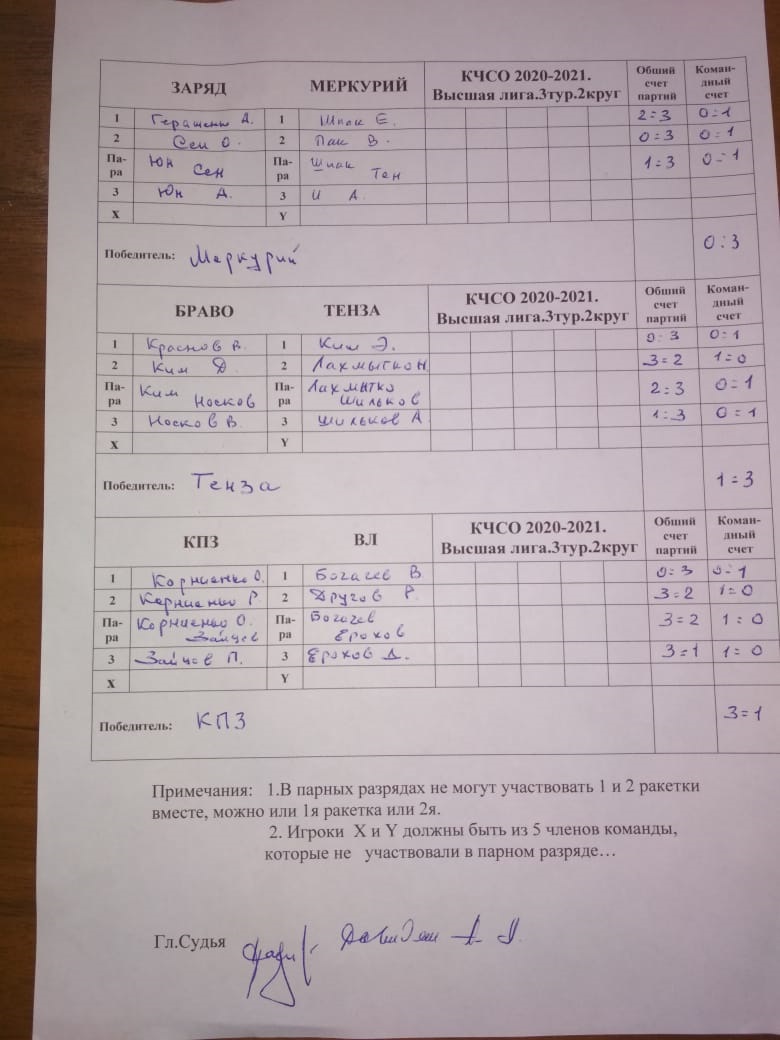 ЗАРЯД МЕРКУРИЙ КЧСО 2020-2021. Высшая лига.3тур.2круг Общий счет партий Коман-дный счет
1 Геращенко А. 1 Шпак Е. 2=3 0=1
2 Сен О. 2 Пак В. 0=3 0=1
Па-ра Юн Сен Па-ра Шпак Тен 1=3 0=1
3 Юн А. 3 И А.
X Y
Победитель: Меркурий 0:3
БРАВО ТЕНЗА КЧСО 2020-2021. Высшая лига.3тур.2круг Общий счет партий Коман-дный счет
1 Краснов В. 1 Ким Э. 0=3 0=1
2 Ким Д. 2 Лахмытко Н. 3=2 1=0
Па-ра Ким Носков Па-ра Лахмытко Шильков 2=3 0=1
3 Носков В. 3 Шильков А 1=3 0=1
X Y
Победитель: Тенза 1=3
КПЗ ВЛ КЧСО 2020-2021. Высшая лига.3тур.2круг Общий счет партий Коман-дный счет
1 Корниенко О. 1 Богачев В 0=3 0=1
2 Корниенко Р. 2 Другов Р. 3=2 1=0
Па-ра Корниенко О. Зайцев Па-ра Богачев Ерохов 3=2 1=0
3 Зайцев П. 3 Ерохов Д. 3=1 1=0
X Y
Победитель: КПЗ 3=1
Примечания: 1.В парных разрядах не могут участвовать 1 и 2 ракетки
вместе, можно или 1я ракетка или 2я.
2. Игроки X и Y должны быть из 5 членов команды,
которые не участвовали в парном разряде…
Гл.Судья